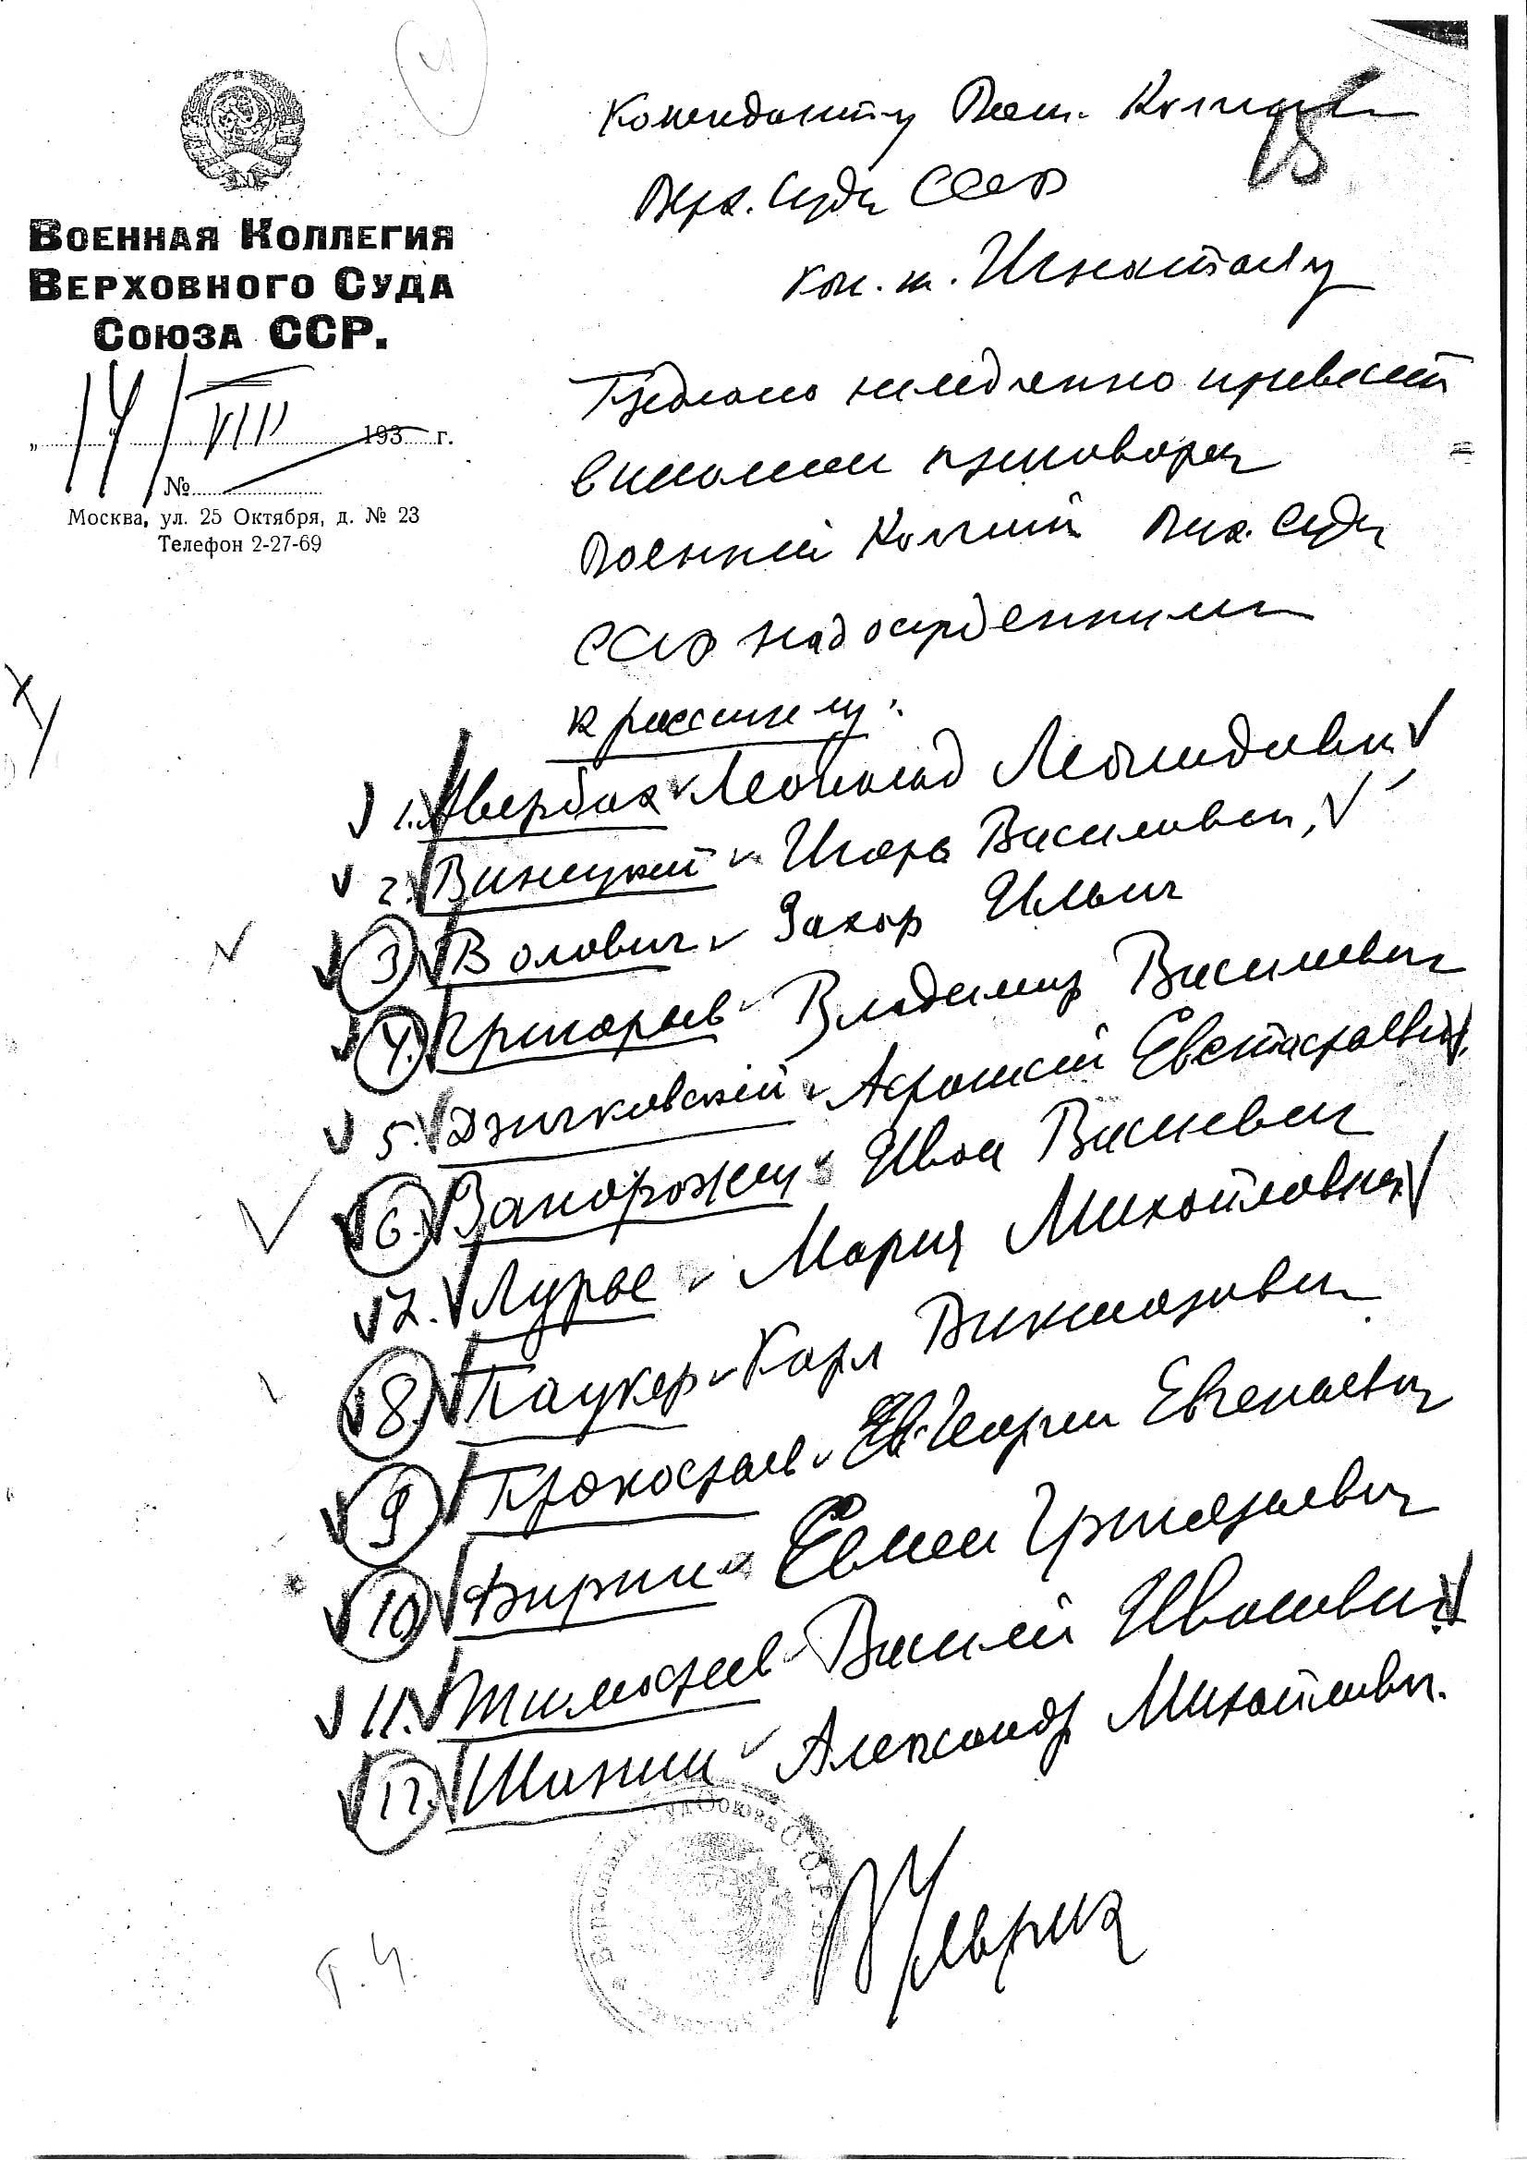 Военная Коллегия
Верховного Суда
Союза ССР.
14/VIII
„ 193 г.
№
Москва, ул. 25 Октября, д. № 23
Телефон 2-27-69
Коменданту Воен. Коллегии
18
Верх. Суда СССР
кап. т. Игнатьеву
Предлагаю немедленно привести
в исполнен приговора
Военной Коллегии Верх. Суда
СССР над осужденными
к расстрелу:
1. Авербах Леопольд Леонидович
2. Винецкий Игорь Васильевич,
3. Волович Захар Ильич
4. Григорьев Владимир Васильевич
5. Дзичковский Евстафьевич
6. Запорожец Иван Васильевич
7. Лурье Мария Михайловна
8. Паукер Карл Викторович
9. Прокофьев Георгий Евгеньевич
10. Фирин Григорьевич
11. Тимофеев Василий Иванович
12. Шанин Александр Михайлович.
В Ульрих